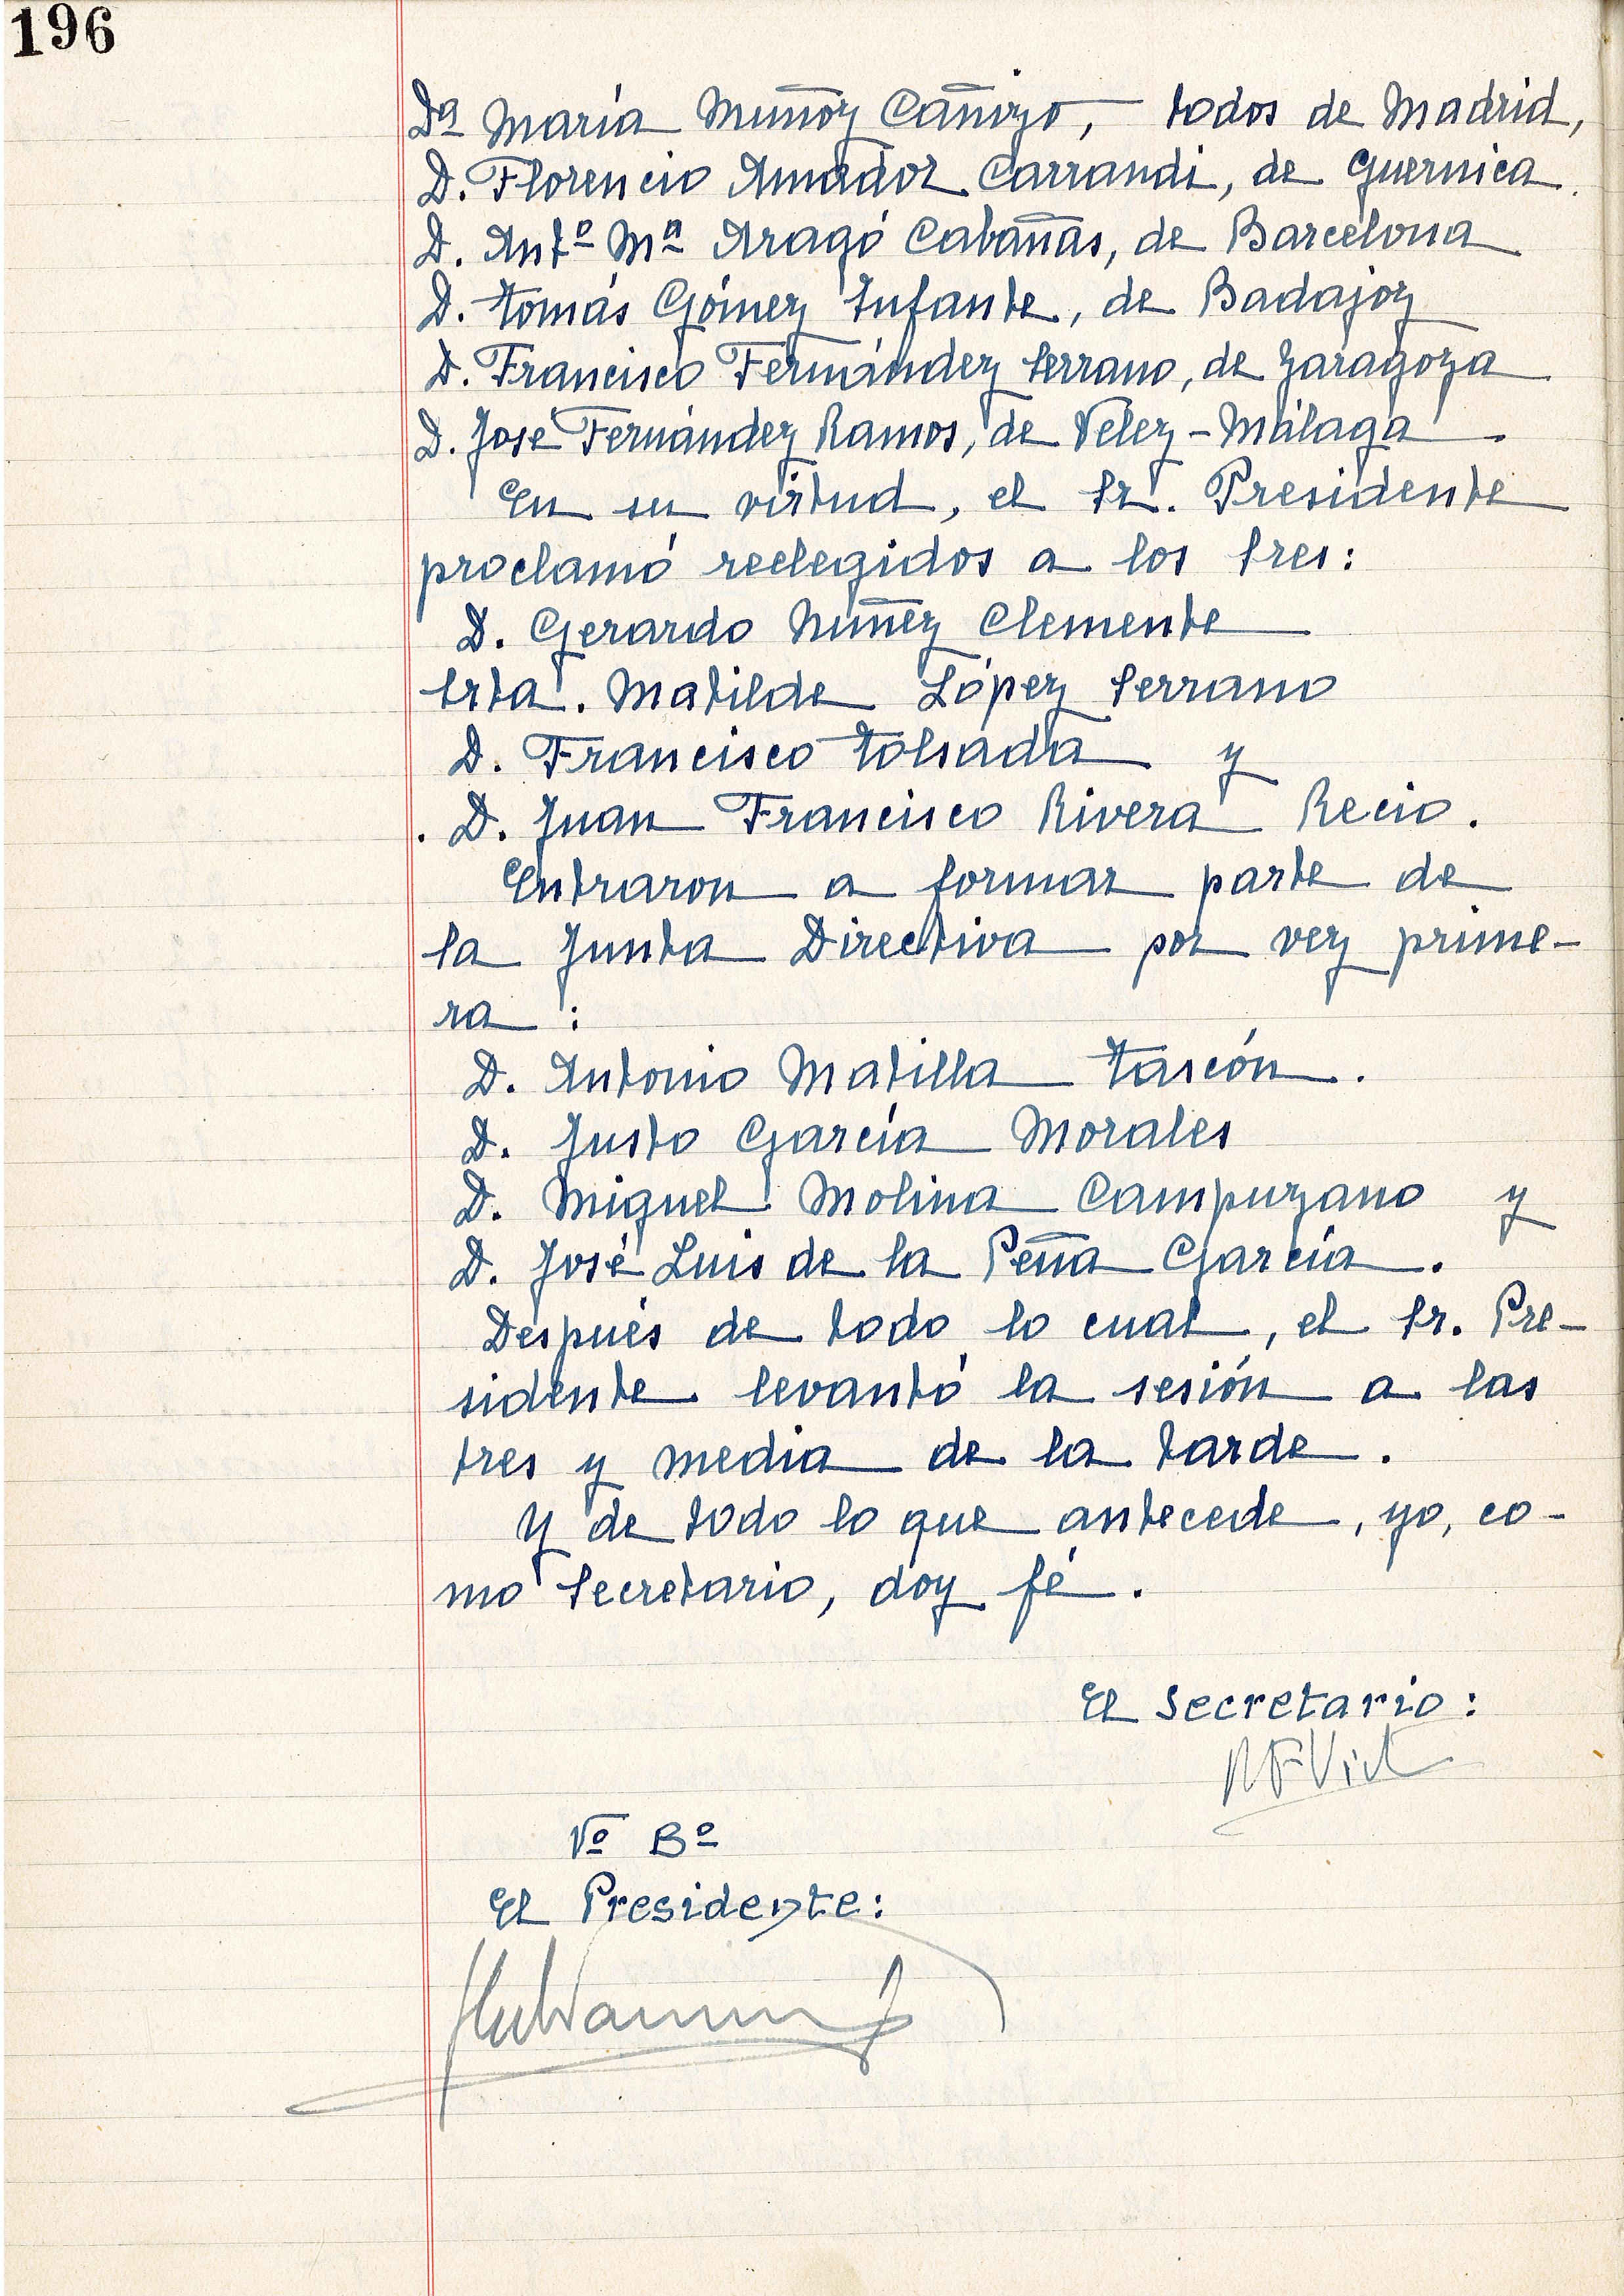 196
Dª María Muñoz Cañizo, todos de Madrid,
D. Florencio Amador Carrandi, de Guernica.
D. Antº Mª Aragó Cabañas, de Barcelona
D. Tomás Gómez Infante, de Badajoz
D. Francisco Fernández Serrano, de Zaragoza
D. José Fernández Ramos, de Velez-Málaga
En su virtud, el Sr. Presidente
proclamó reelegidos a los Sres:
D. Gerardo Núñez Clemente
Srta. Matilde López Serrano
D. Francisco Tolsada y
D. Juan Francisco Rivera Recio.
Entraron a formar parte de
la Junta Directiva por vez prime-
ra:
D. Antonio Matilla Tascón.
D. Justo García Morales
D. Miguel Molina Campuzano y
D. José Luis de la Peña García.
Después de todo lo cual, el Sr. Pre-
sidente levantó la sesión a las
tres y media de la tarde.
Y de todo lo que antecede, yo, co-
mo Secretario, doy fé.
El Secretario:
Vº Bº
El Presidente: